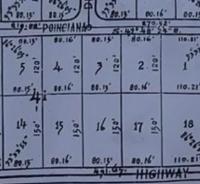 80.15' 80.16' 80.16'
POINCIANA
80.15' 80.16' 80.16' 80.16' 110.21'
5 120' 4 120' 3 120' 2 120' 1
80.15' 80.16' 80.16' 80.16' 110.21'
4
14 150' 15 150' 16 150' 17 150' 18
80.15' 80.16' 80.16' 80.16' 110.21'
HIGHWAY